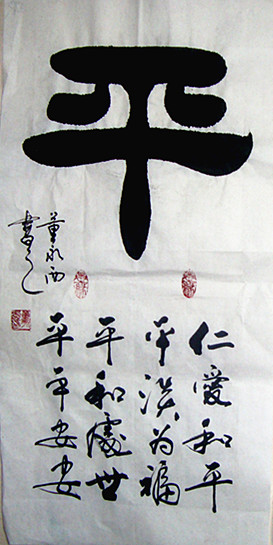 平
仁愛和平
平淡为福
平和處世
平平安安
董永西
書之